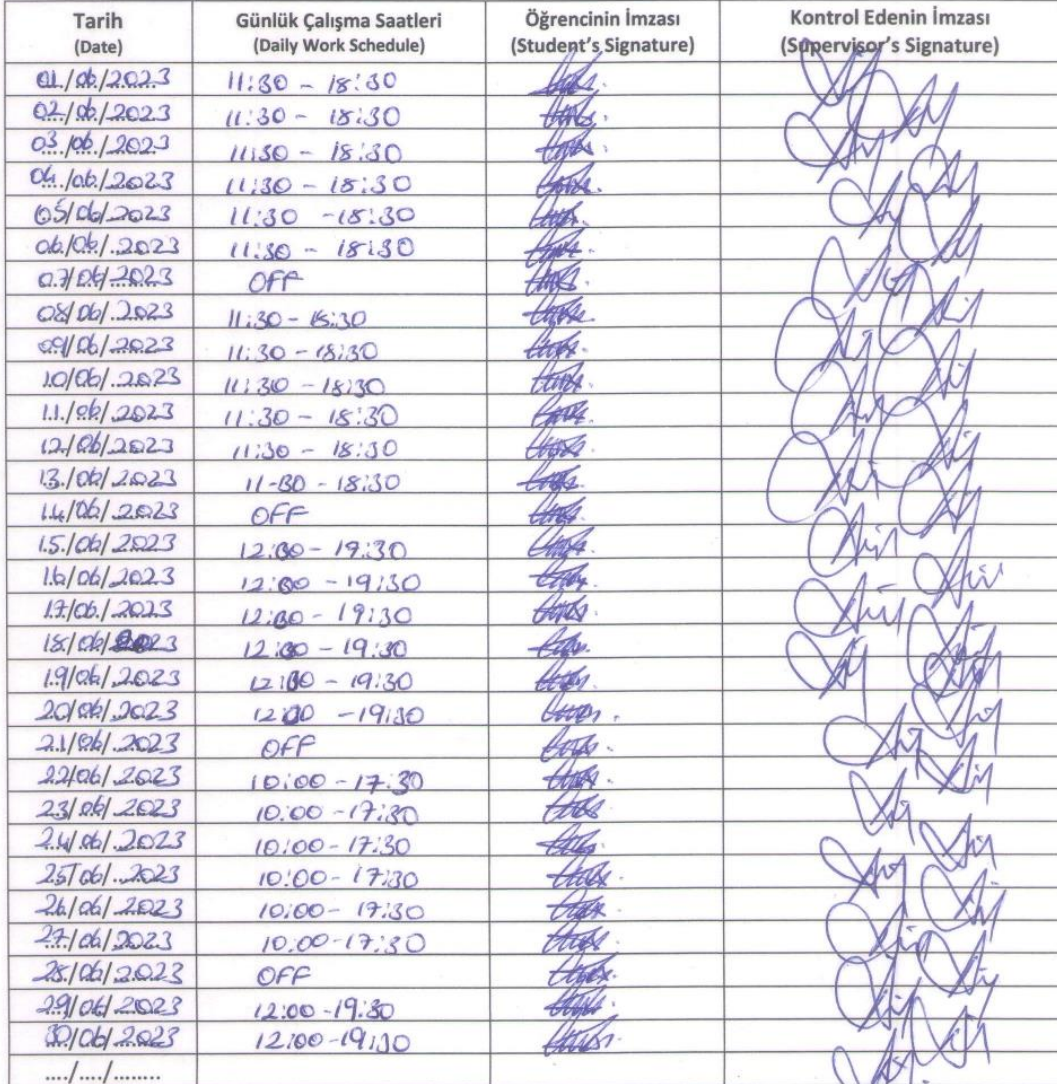 Tarih Günlük Çalışma Saatleri Öğrencinin İmzası Kontrol Edenin İmzası
(Date) (Daily Work Schedule) (Student's Signature) (Supervisor's Signature)
01./06/2023 11:30 - 18:30
02./06./2023 11:30 - 18:30
03./06./2023 11:30 - 18:30
04./06./2023 11:30 - 18:30
05/06/2023 11:30 - 18:30
06./06/..2023 11:30 - 18:30
07/06/2023 OFF
08/06/..2023 11:30 - 18:30
09/06/..2023 11:30 - 18:30
10/06/..2023 11:30 - 18:30
11./06/..2023 11:30 - 18:30
12./06/2023 11:30 - 18:30
13./06/2023 11-30 - 18:30
14/06/..2023 OFF
15./06/2023 12:00 - 19:30
16/06/2023 12:00 - 19:30
17/06./..2023 12:00 - 19:30
18/06/2023 12:00 - 19:30
19/06/..2023 12:00 - 19:30
20/06/..2023 12:00 - 19:30
21/06/..2023 OFF
22/06/..2023 10:00 - 17:30
23/06/..2023 10:00 - 17:30
24/06/..2023 10:00 - 17:30
25/06/..2023 10:00 - 17:30
26/06/..2023 10:00 - 17:30
27/06/2023 10:00 - 17:30
28/06/2023 OFF
29/06/2023 12:00 - 19:30
30/06/2023 12:00 - 19:30
..../..../........